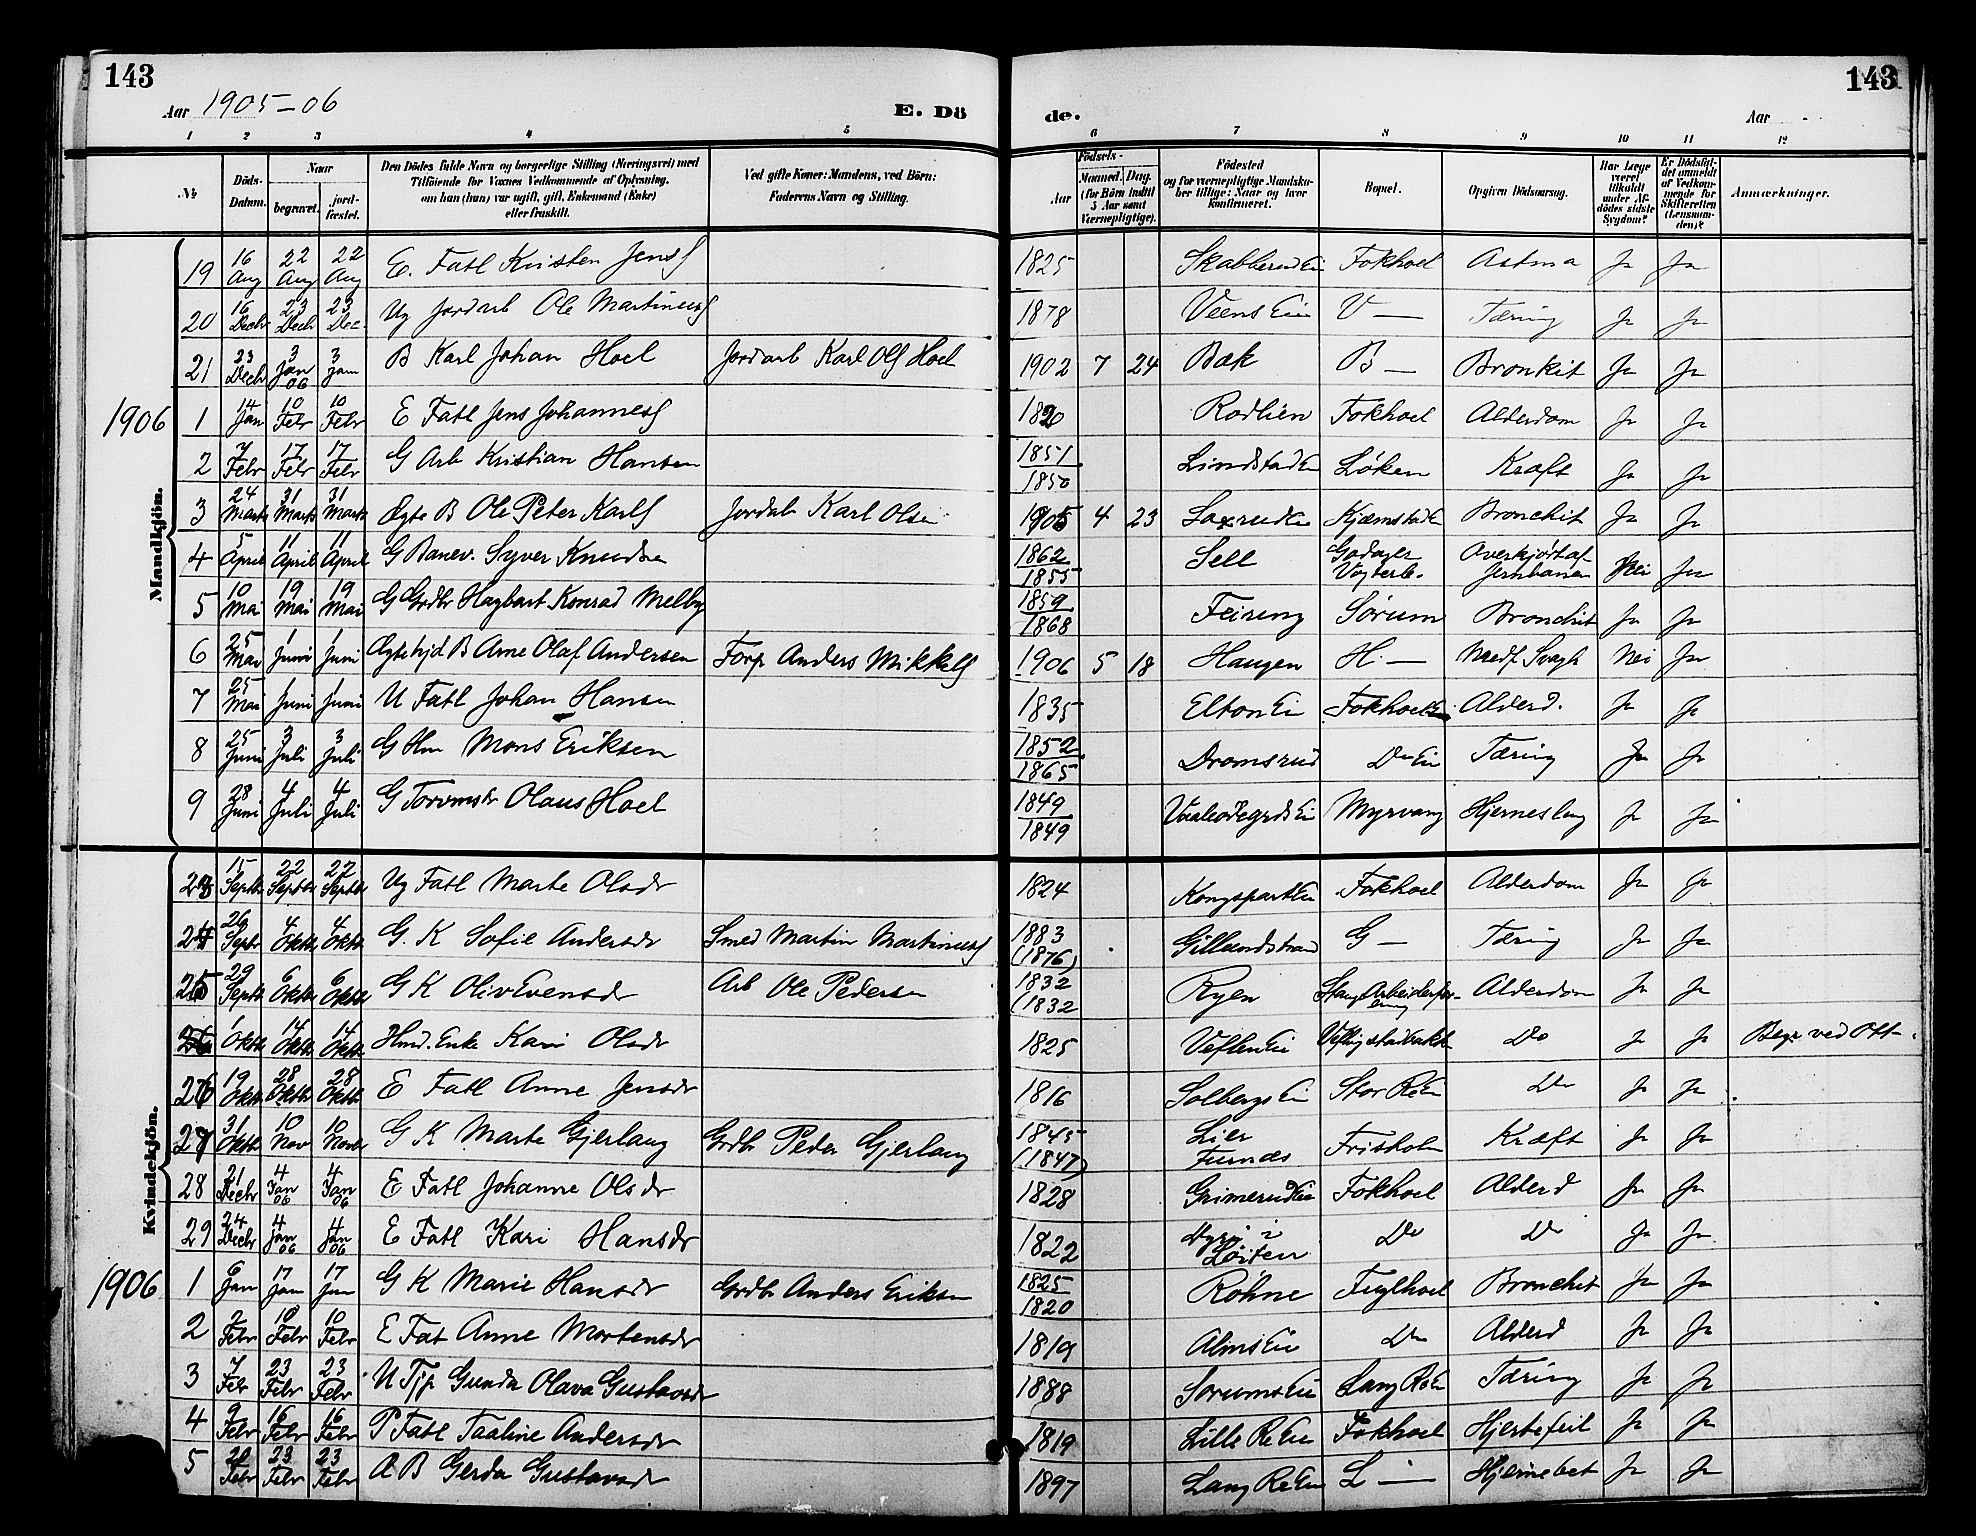 143
143
Aar 1905-06
E. Dö
de.
Aar
1 2 3 4 5 6 7 8 9 10 11 12
№
Döds-Datum.
Naar
begravet.
jord-fæstet.
Den Dödes fulde Navn og borgerlige Stilling (Næringsvei) med
Tilföiende for Voxnes Vedkommende af Oplysning.
om han (hun) var ugift, gift, Enkemand (Enke)
eller fraskilt.
Ved gifte Koner: Mandens, ved Börn:
Faderens Navn og Stilling.
Födsels-
Aar
Maaned. Dag.
(for Börn indtil
5 Aar samt
Værnepligtige).
Födested
og for værnepligtige Mandska-
ber tillige: Naar og hvor
konfirmeret.
Bopæl.
Opgiven Dödsaarsag.
Har Læge
været
tilkaldt
under Af-
dödes sidste
Sygdom?
Er Dödsfal-
det anmeldt
af Vedkom-
mende for
Skifteretten
(Lensman-
den)?
Anmærkninger.
Mandkjön.
19 16 Aug 22 Aug 22 Aug E. Fatl Kristen Jens 1825 Skabberud Ei Fokhoel Astma Ja Ja
20 16 Decbr 23 Decb 23 Dec. Ug Jordarb Ole Martinus 1878 Veens Eie V — Tæring Ja Ja
21 23 Decbr 3 Jan 06 3 Jan B Karl Johan Hoel Jordarb Karl Ols Hoel 1902 7 24 Bæk B — Bronkit Ja Ja
1906
1 14 Jan 10 Febr 10 Febr E Fatl Jens Johannes 1820 Rodlien Fokhoel Alderdom Ja Ja
2 7 Febr 17 Febr 17 Febr G Arb Kristian Hansen 1851 1850 Lindstad Ei Løken Kræft Ja Ja
3 24 Marts 31 Marts 31 Marts Ægte B Ole Peter Karls Jordab Karl Olsen 1905 4 23 Saxrud Ei Kjæmstad Ei Bronchit Ja Ja
4 5 April 11 April 11 April G Banev. Syver Knudsen 1862 1855 Sell Godager Vogterb. Overkjört af Jernbanen Nei Ja
5 10 Mai 19 Mai 19 Mai G Grdbr Hagbart Konrad Melby 1859 1868 Feiring Sørum Bronchit Ja Ja
6 25 Mai 1 Juni 1 Juni Ægte hjd B Arne Olaf Andersen Forp Anders Mikkels 1906 5 18 Haugen H. — Medf Svagh Nei Ja
7 25 Mai 1 Juni 1 Juni U Fatl Johan Hansen 1835 Elton Ei Fokhoel Alderd. Ja Ja
8 25 Juni 3 Juli 3 Juli G Hm Mons Eriksen 1852 1865 Dromsrud Do Ei Tæring Ja Ja
9 28 Juni 4 Juli 4 Juli G Torvmstr Olaus Hoel 1849 1849 Myrvang Hjerneslag Ja Ja
Kvindekjön.
23 15 Septbr 22 Septbr 22 Septbr Ug Fatl Marte Olsdr 1824 Kongspart Ei Fokhoel Alderdom Ja Ja
24 26 Septr 4 Oktbr 4 Oktbr G. K Sofie Andersdr Smed Martin Martinus 1883 (1876) Gillundstrand G — Tæring Ja Ja
25 29 Septb 6 Oktbr 6 Oktbr G K Oliv Evensdr Arb Ole Pedersen 1832 (1832 Ryen Alderdom Ja Ja
1 Oktbr 14 Oktbr 14 Oktbr Hmd. Enke Kari Olsdr 1825 Veflen Ei Do Ja Ja Begr ved Ott-
26 19 Oktb 28 Oktbr 28 Oktbr E Fatl Anne Jensdr 1816 Solbergs Ei Stor Re Ei Do Ja Ja
27 31 Oktbr 10 Nov 10 Novbr G K Marte Gjerlaug Grdbr Peder Gjerlaug 1845 (1847) Lier Furnæs Frisholm Kræft Ja Ja
28 21 Decbr 4 Jan 06 4 Jan 06 E Fatl Johanne Olsdr 1828 Grimerud Ei Fokhoel Alderd Ja Ja
29 24 Decbr 4 Jan 06 4 Jan 06 E Fatl Kari Hansdr 1822 i Löiten Do Do Ja Ja
1906
1 6 Jan 17 Jan 17 Jan G K Marie Hansdr Grdbr Anders Eriksen 1825 1820 Röhne Fuglhoel Bronchit Ja Ja
2 2 Febr 10 Febr 10 Febr E Fat Anne Mortensdr 1819 Alms Ei Do Alderd Ja Ja
3 7 Feb 23 Febr 23 Febr U Tjp Gunda Olava Gustavsdr 1888 Sorums Ei Lang Re Ei Tæring Ja Ja
4 9 Febr 16 Febr 16 Febr P Fatl Taaline Andersdr 1819 Lille Re Ei Fokhoel Hjertefeil Ja Ja
5 20 Febr 23 Febr 23 Febr A B Gerda Gustavsdr 1897 Lang Re Ei L — Hjernebet Ja Ja